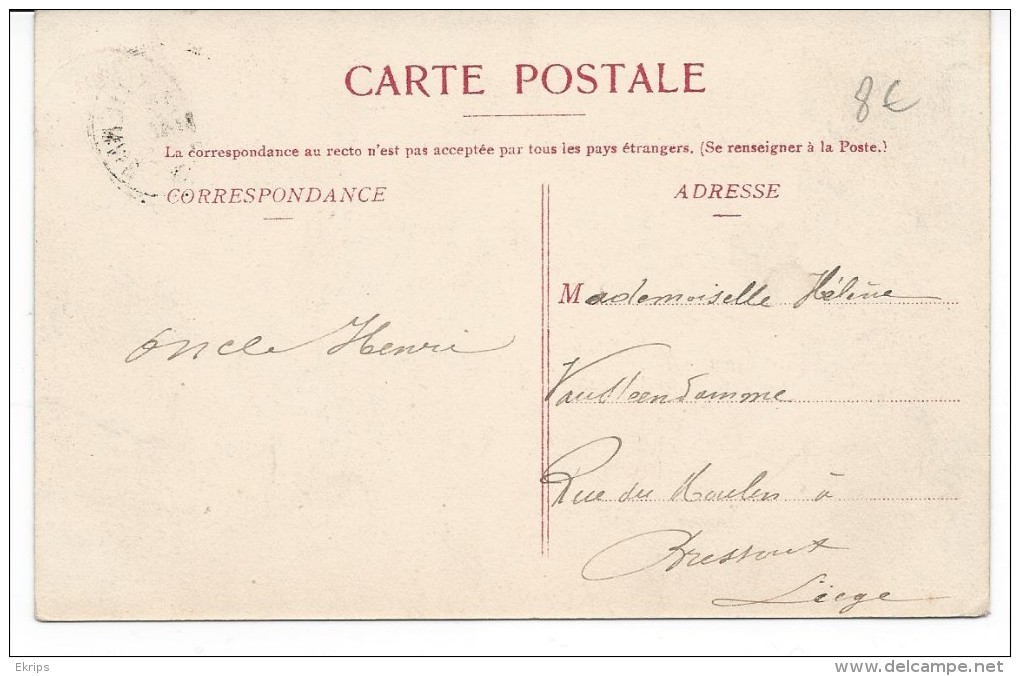 CARTE POSTALE
8€
La correspondance au recto n'est pas acceptée par tous les pays étrangers. (Se renseigner à la Poste.)
CORRESPONDANCE
ADRESSE
Mademoiselle Hélène
Oncle Henri
Rue du Moulin à
Bressoux
Liège
Ekrips
www.delcampe.net